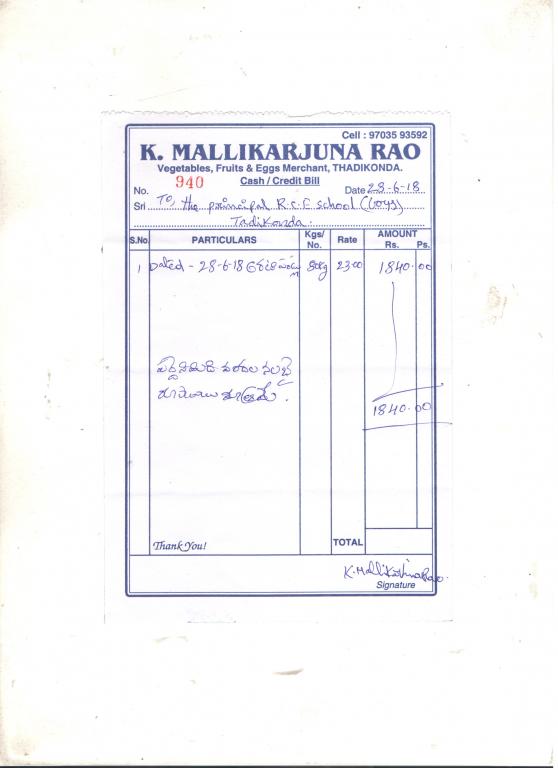 Cell : 97035 93592
K. MALLIKARJUNA RAO
Vegetables, Fruits & Eggs Merchant, THADIKONDA.
Cash / Credit Bill
No. 940 Date 28-6-18
Sri To, the principal R.C.E school (boys)
Tadikonda.
S.No. PARTICULARS Kgs/ No. Rate AMOUNT Rs. Ps.
1 Dated - 28-6-18 80kg 23.00 1840.00
పద్దెనిమిది వందల నలభై
రూపాయలు మాత్రమే.
1840.00
Thank You! TOTAL
K. Mallikarjuna Rao.
Signature